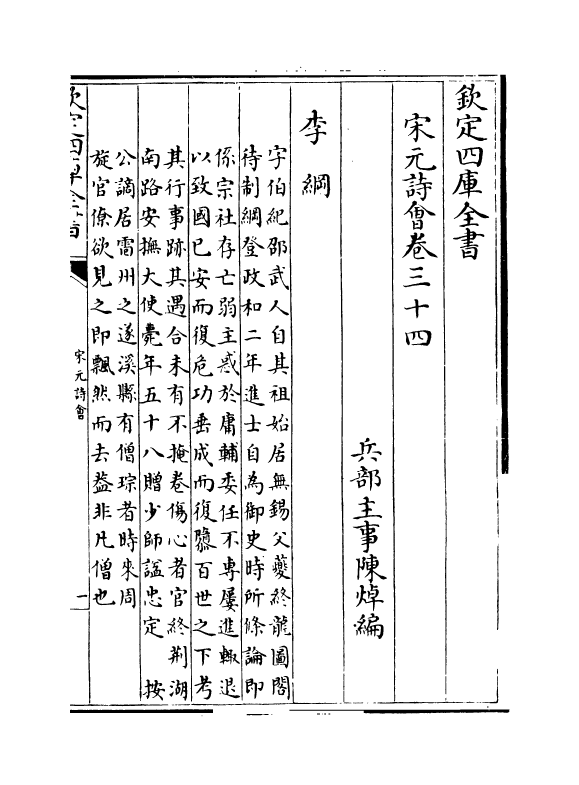 欽定四庫全書
宋元詩㑹卷三十四
兵部主事陳焯編
李綱
字伯紀邵武人自其祖始居無錫父夔終龍圖閣
待制綱登政和二年進士自為御史時所條論即
係宗社存亡弱主惑於庸輔委任不専屢進輙退
以致國已安而復危功垂成而復隳百世之下考
其行事跡其遇合未有不掩卷傷心者官終荆湖
南路安撫大使薨年五十八贈少師諡忠定　按
公謫居雷州之遂溪縣有僧琮者時來周
旋官僚欲見之即飄然而去葢非凡僧也
欽定四庫全書
宋元詩㑹
一